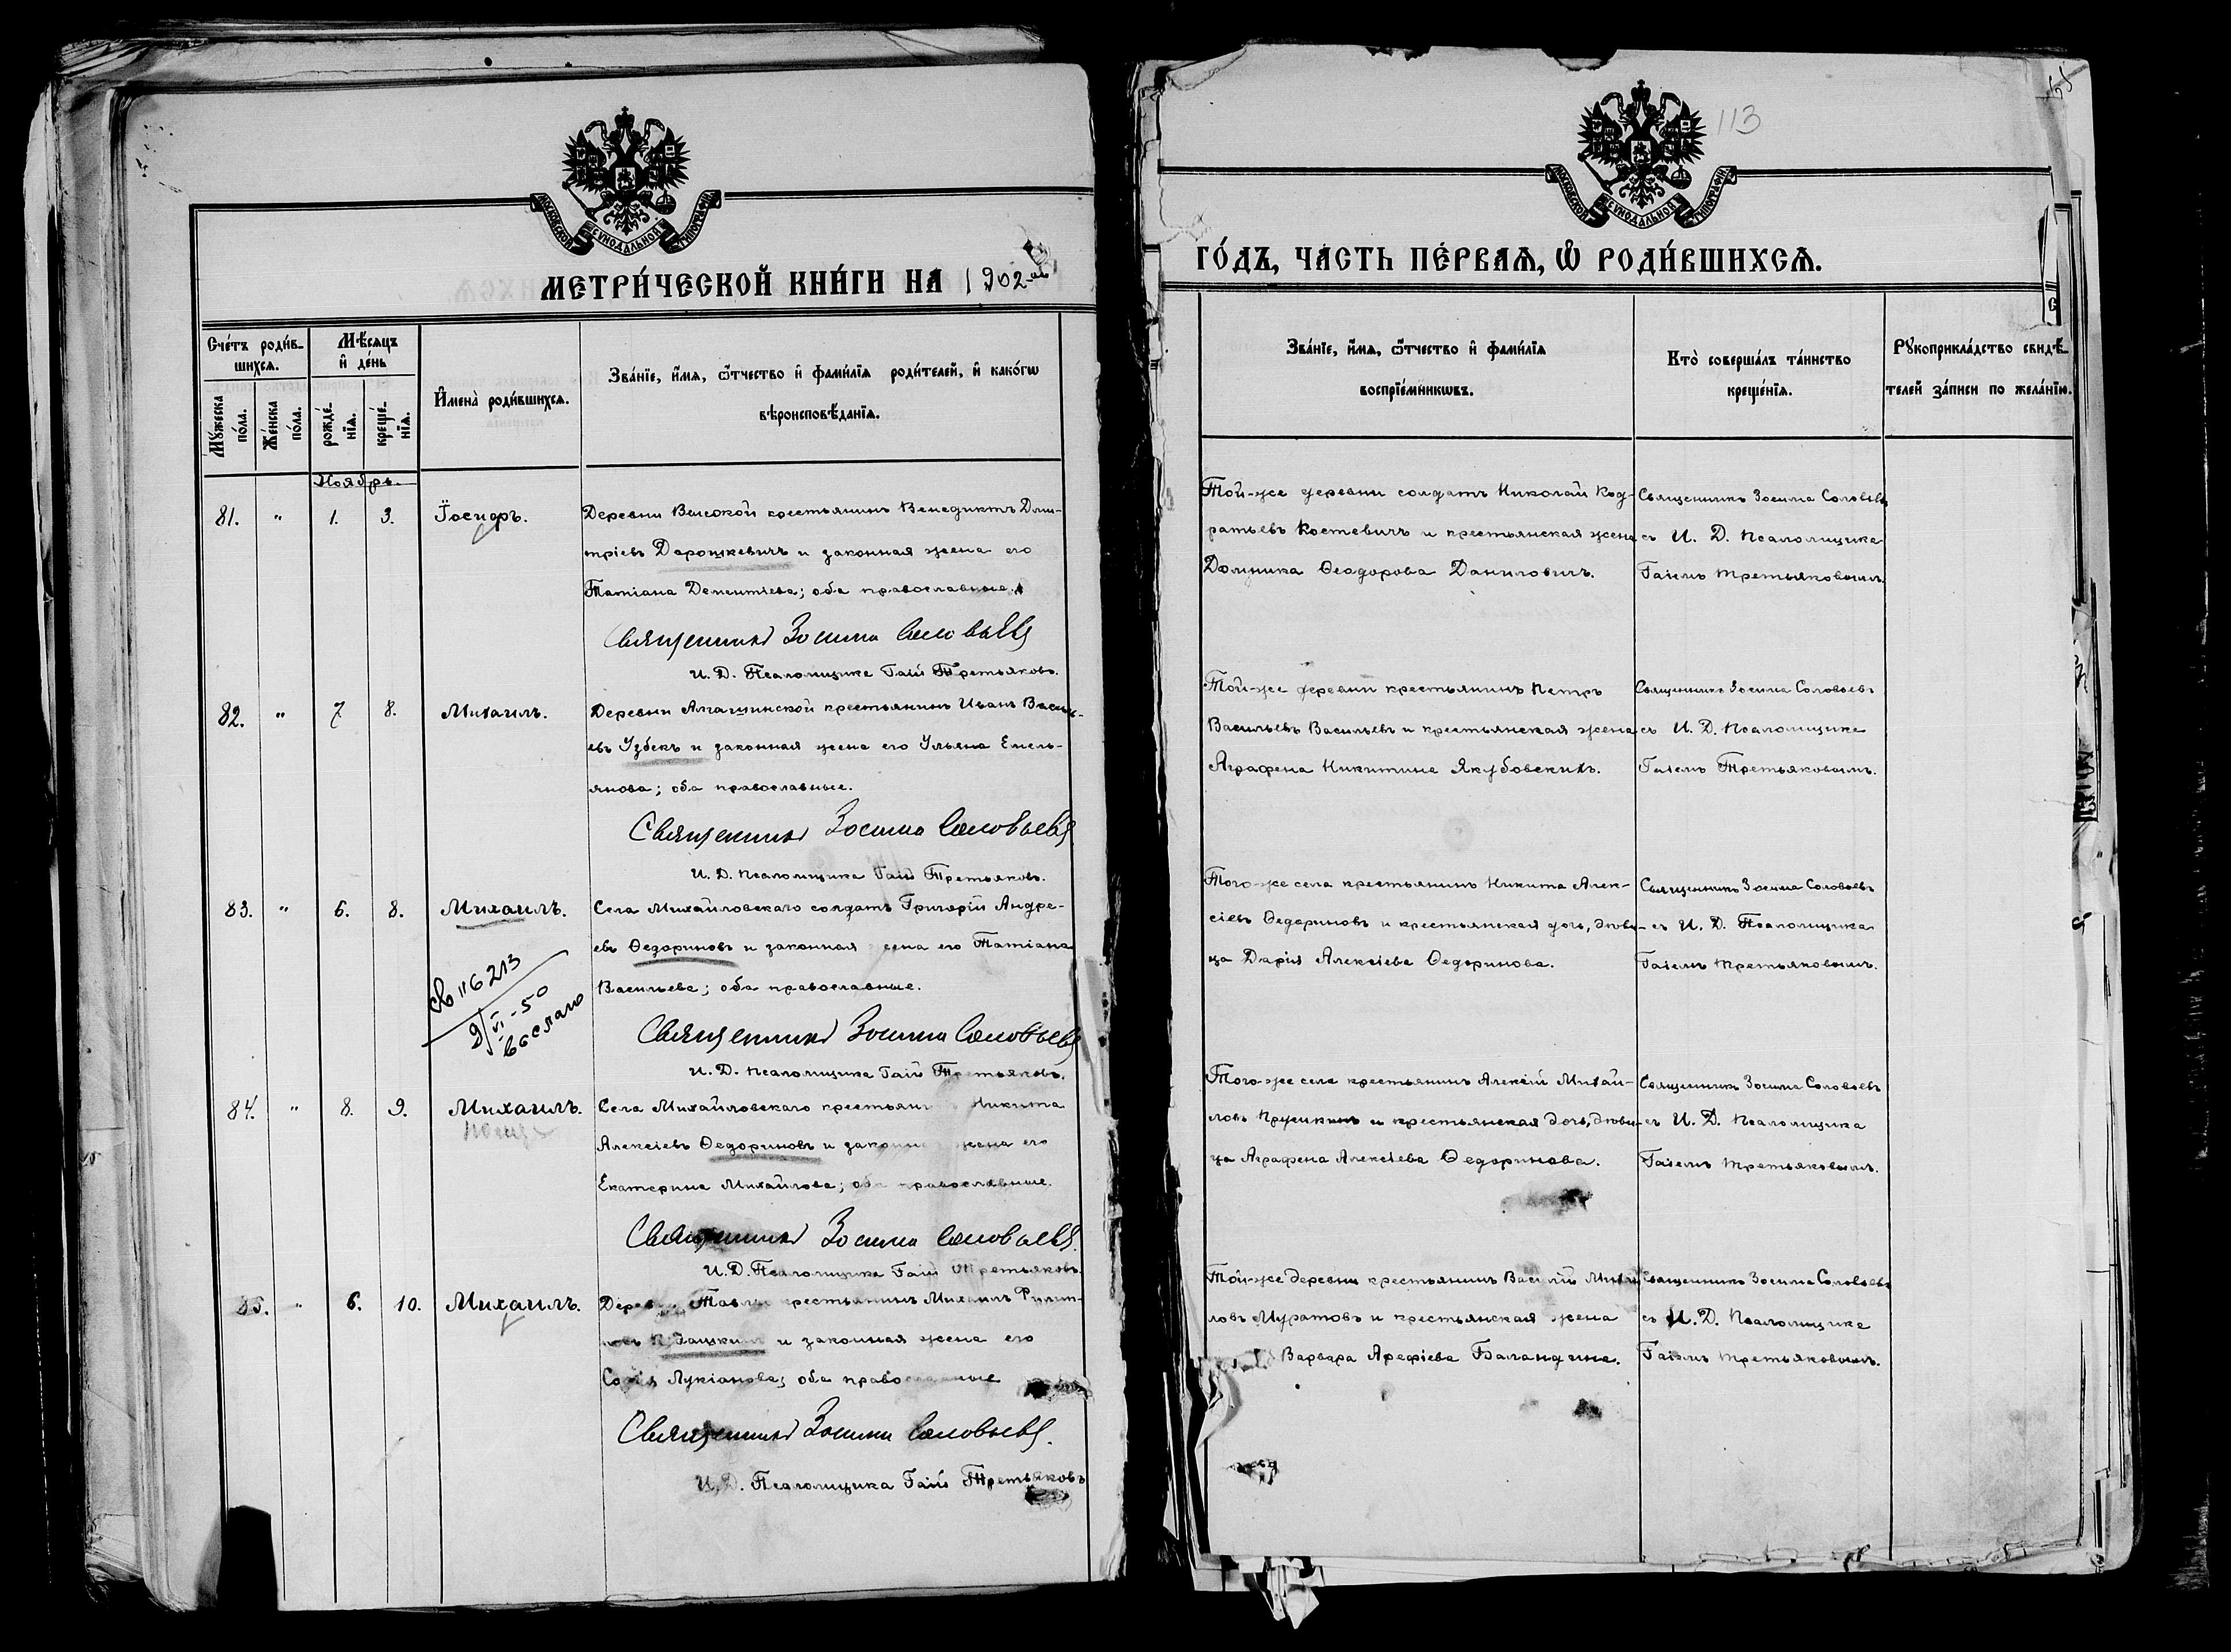 МОСКОВСКОЙ СУНОДАЛЬНОЙ ТИПОГРАФІИ
МЕТРИ́ЧЕСКОЙ КНИ́ГИ НА 1902-ой
Сче́тъ роди́в-
шихся.
Мѣ́сяцъ
и҆ де́нь
Мꙋ́жеска
по́ла.
Же́нска
по́ла.
рожде́-
нїя.
креще́-
нїя.
И҆мена̀ роди́вшихся.
Зва́нїе, и҆́мя, ѻ҆́тчество и҆ фами́лїя роди́телей, и҆ како́гѡ
вѣроисповѣ́данїя.
Ноябрь.
81. " 1. 3. Іосифъ.
Деревни Высокой крестьянинъ Венедиктъ Дми-
тріевъ Дорошкевичъ и законная жена его
Татіана Дементіева; оба православные.
Священникъ Зосима Соловьевъ
И. Д. Псаломщика Гаій Третьяковъ.
82. " 7. 8. Михаилъ.
Деревни Алагшинской крестьянинъ Иванъ Василь-
евъ Узбекъ и законная жена его Ульяна Емель-
янова; оба православные.
Священникъ Зосима Соловьевъ
И. Д. Псаломщика Гаій Третьяковъ.
83. " 6. 8. Михаилъ.
Села Михайловскаго солдатъ Григорій Андре-
евъ Ѳедориновъ и законная жена его Татіана
Васильева; оба православные.
св 116213
9/VI-50
выслано
Священникъ Зосима Соловьевъ
И. Д. Псаломщика Гаій Третьяковъ.
84. " 8. 9. Михаилъ.
Села Михайловскаго крестьянинъ Никита
Алексіевъ Ѳедориновъ и законная жена его
Екатерина Михайлова; оба православные.
Священникъ Зосима Соловьевъ
И. Д. Псаломщика Гаій Третьяковъ.
85. " 6. 10. Михаилъ.
Деревни крестьянинъ Михаилъ Филип-
повъ и законная жена его
Софія Лукіанова; оба православные
Священникъ Зосима Соловьевъ.
И. Д. Псаломщика Гаій Третьяковъ
113
МОСКОВСКОЙ СУНОДАЛЬНОЙ ТИПОГРАФІИ
ГО́ДЪ, ЧА́СТЬ ПЕ́РВАЯ, Ѡ҆ РОДИ́ВШИХСЯ.
Зва́нїе, и҆́мя, ѻ҆́тчество и҆ фами́лїя
воспрїе́мникѡвъ.
Кто̀ соверша́лъ та́инство
креще́нїя.
Рꙋкоприкла́дство свидѣ́-
телей за́писи по жела́нїю.
Той-же деревни солдатъ Николай Код-
ратьевъ Костевичъ и крестьянская жена
Домника Ѳеодорова Даниловичъ.
Священникъ Зосима Соловьевъ
съ И. Д. Псаломщика
Гаіемъ Третьяковымъ.
Той-же деревни крестьянинъ Петръ
Васильевъ Васильевъ и крестьянская жена
Аграфена Никитина Якубовскихъ.
Священникъ Зосима Соловьевъ
съ И. Д. Псаломщика
Гаіемъ Третьяковымъ.
Того-же села крестьянинъ Никита Алек-
сіевъ Ѳедориновъ и крестьянская дочь, дѣви-
ца Дарія Алексіева Ѳедоринова.
Священникъ Зосима Соловьевъ
съ И. Д. Псаломщика
Гаіемъ Третьяковымъ.
Того-же села крестьянинъ Алексій Михай-
ловъ Прушкинъ и крестьянская дочь, дѣви-
ца Аграфена Алексіева Ѳедоринова.
Священникъ Зосима Соловьевъ
съ И. Д. Псаломщика
Гаіемъ Третьяковымъ.
Той-же деревни крестьянинъ Василій Михай-
ловъ Муратовъ и крестьянская жена
Варвара Арефіева Баландина.
Священникъ Зосима Соловьевъ
съ И. Д. Псаломщика
Гаіемъ Третьяковымъ.